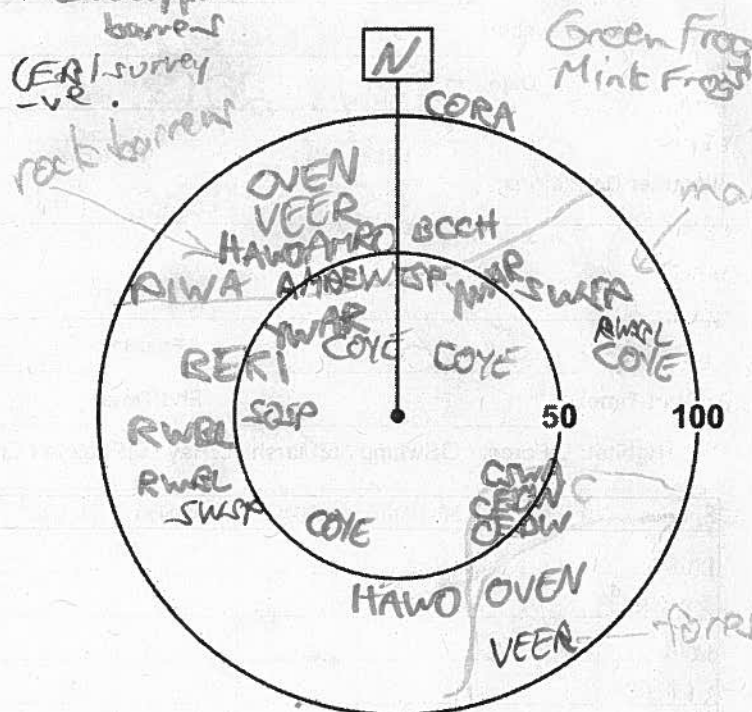 barrens
survey
-ve.
rock barrens
N
Green Frog
Mink Frogs
CORA
OVEN
VEER
HAWO AMRO BCCH
AMBE WTSP YWAR SWSP
YWAR
COYE COYE
RWBL
COYE
BEKI
RWBL
50 100
RWBL
SWSP
COYE
CSWA
CEDW
CEDW
HAWO OVEN
VEER